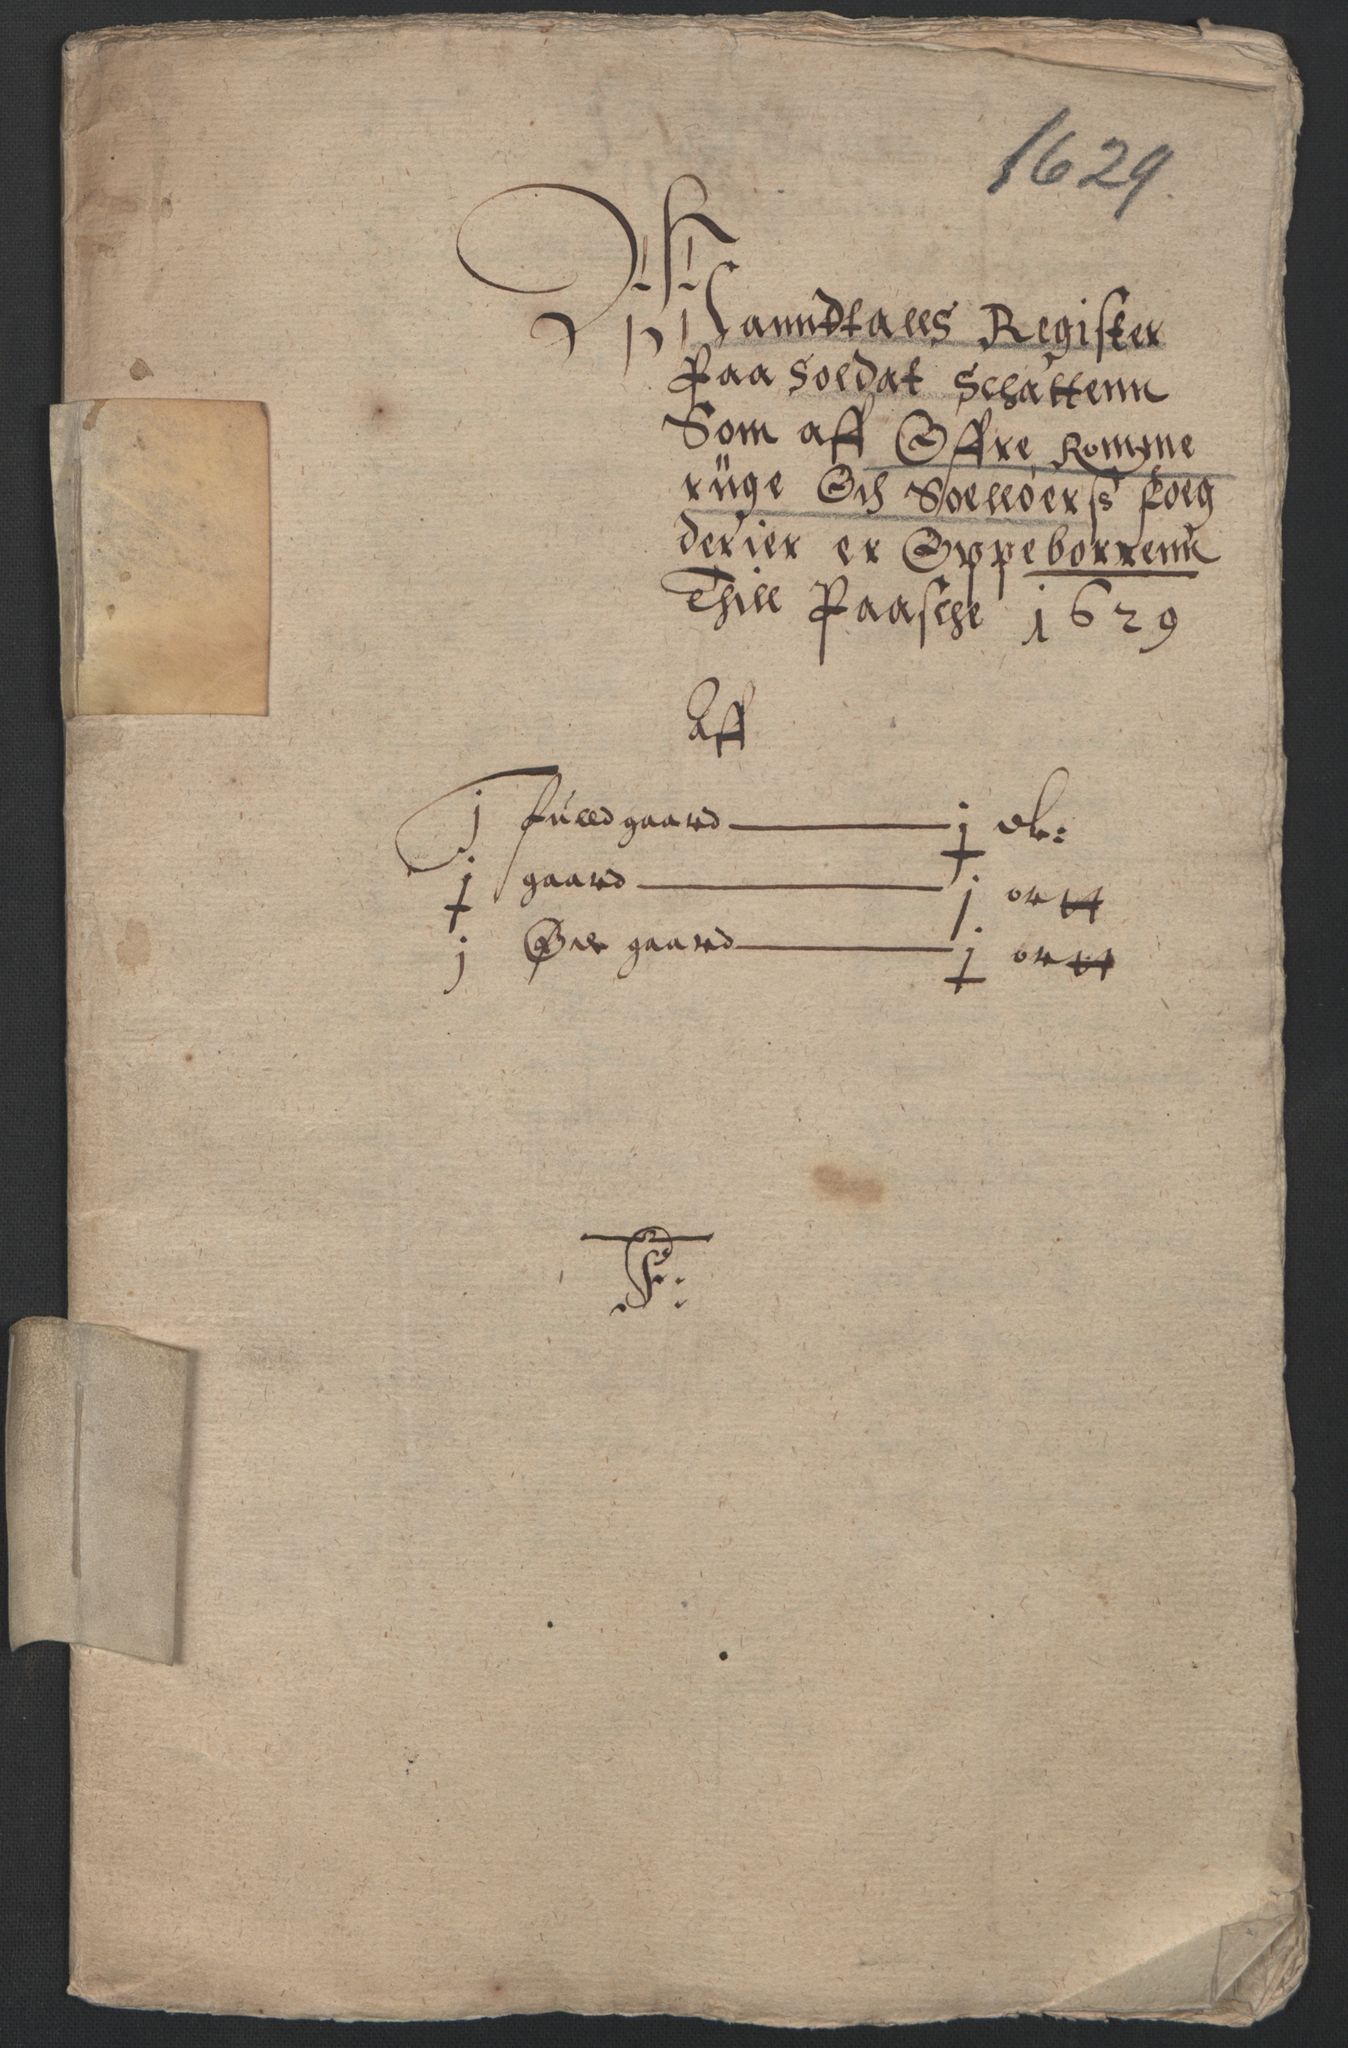 1629
Manndtaells Register
Paa Soldat Schattenn
Som aff Offre Romme
rüge Och Soelloerß foeg
derier er Oppeborrenn
Thill Paasche 1629
Aff
j fulld gaard j dlr:
j gaard j ort
j Øde gaard j ort
F: